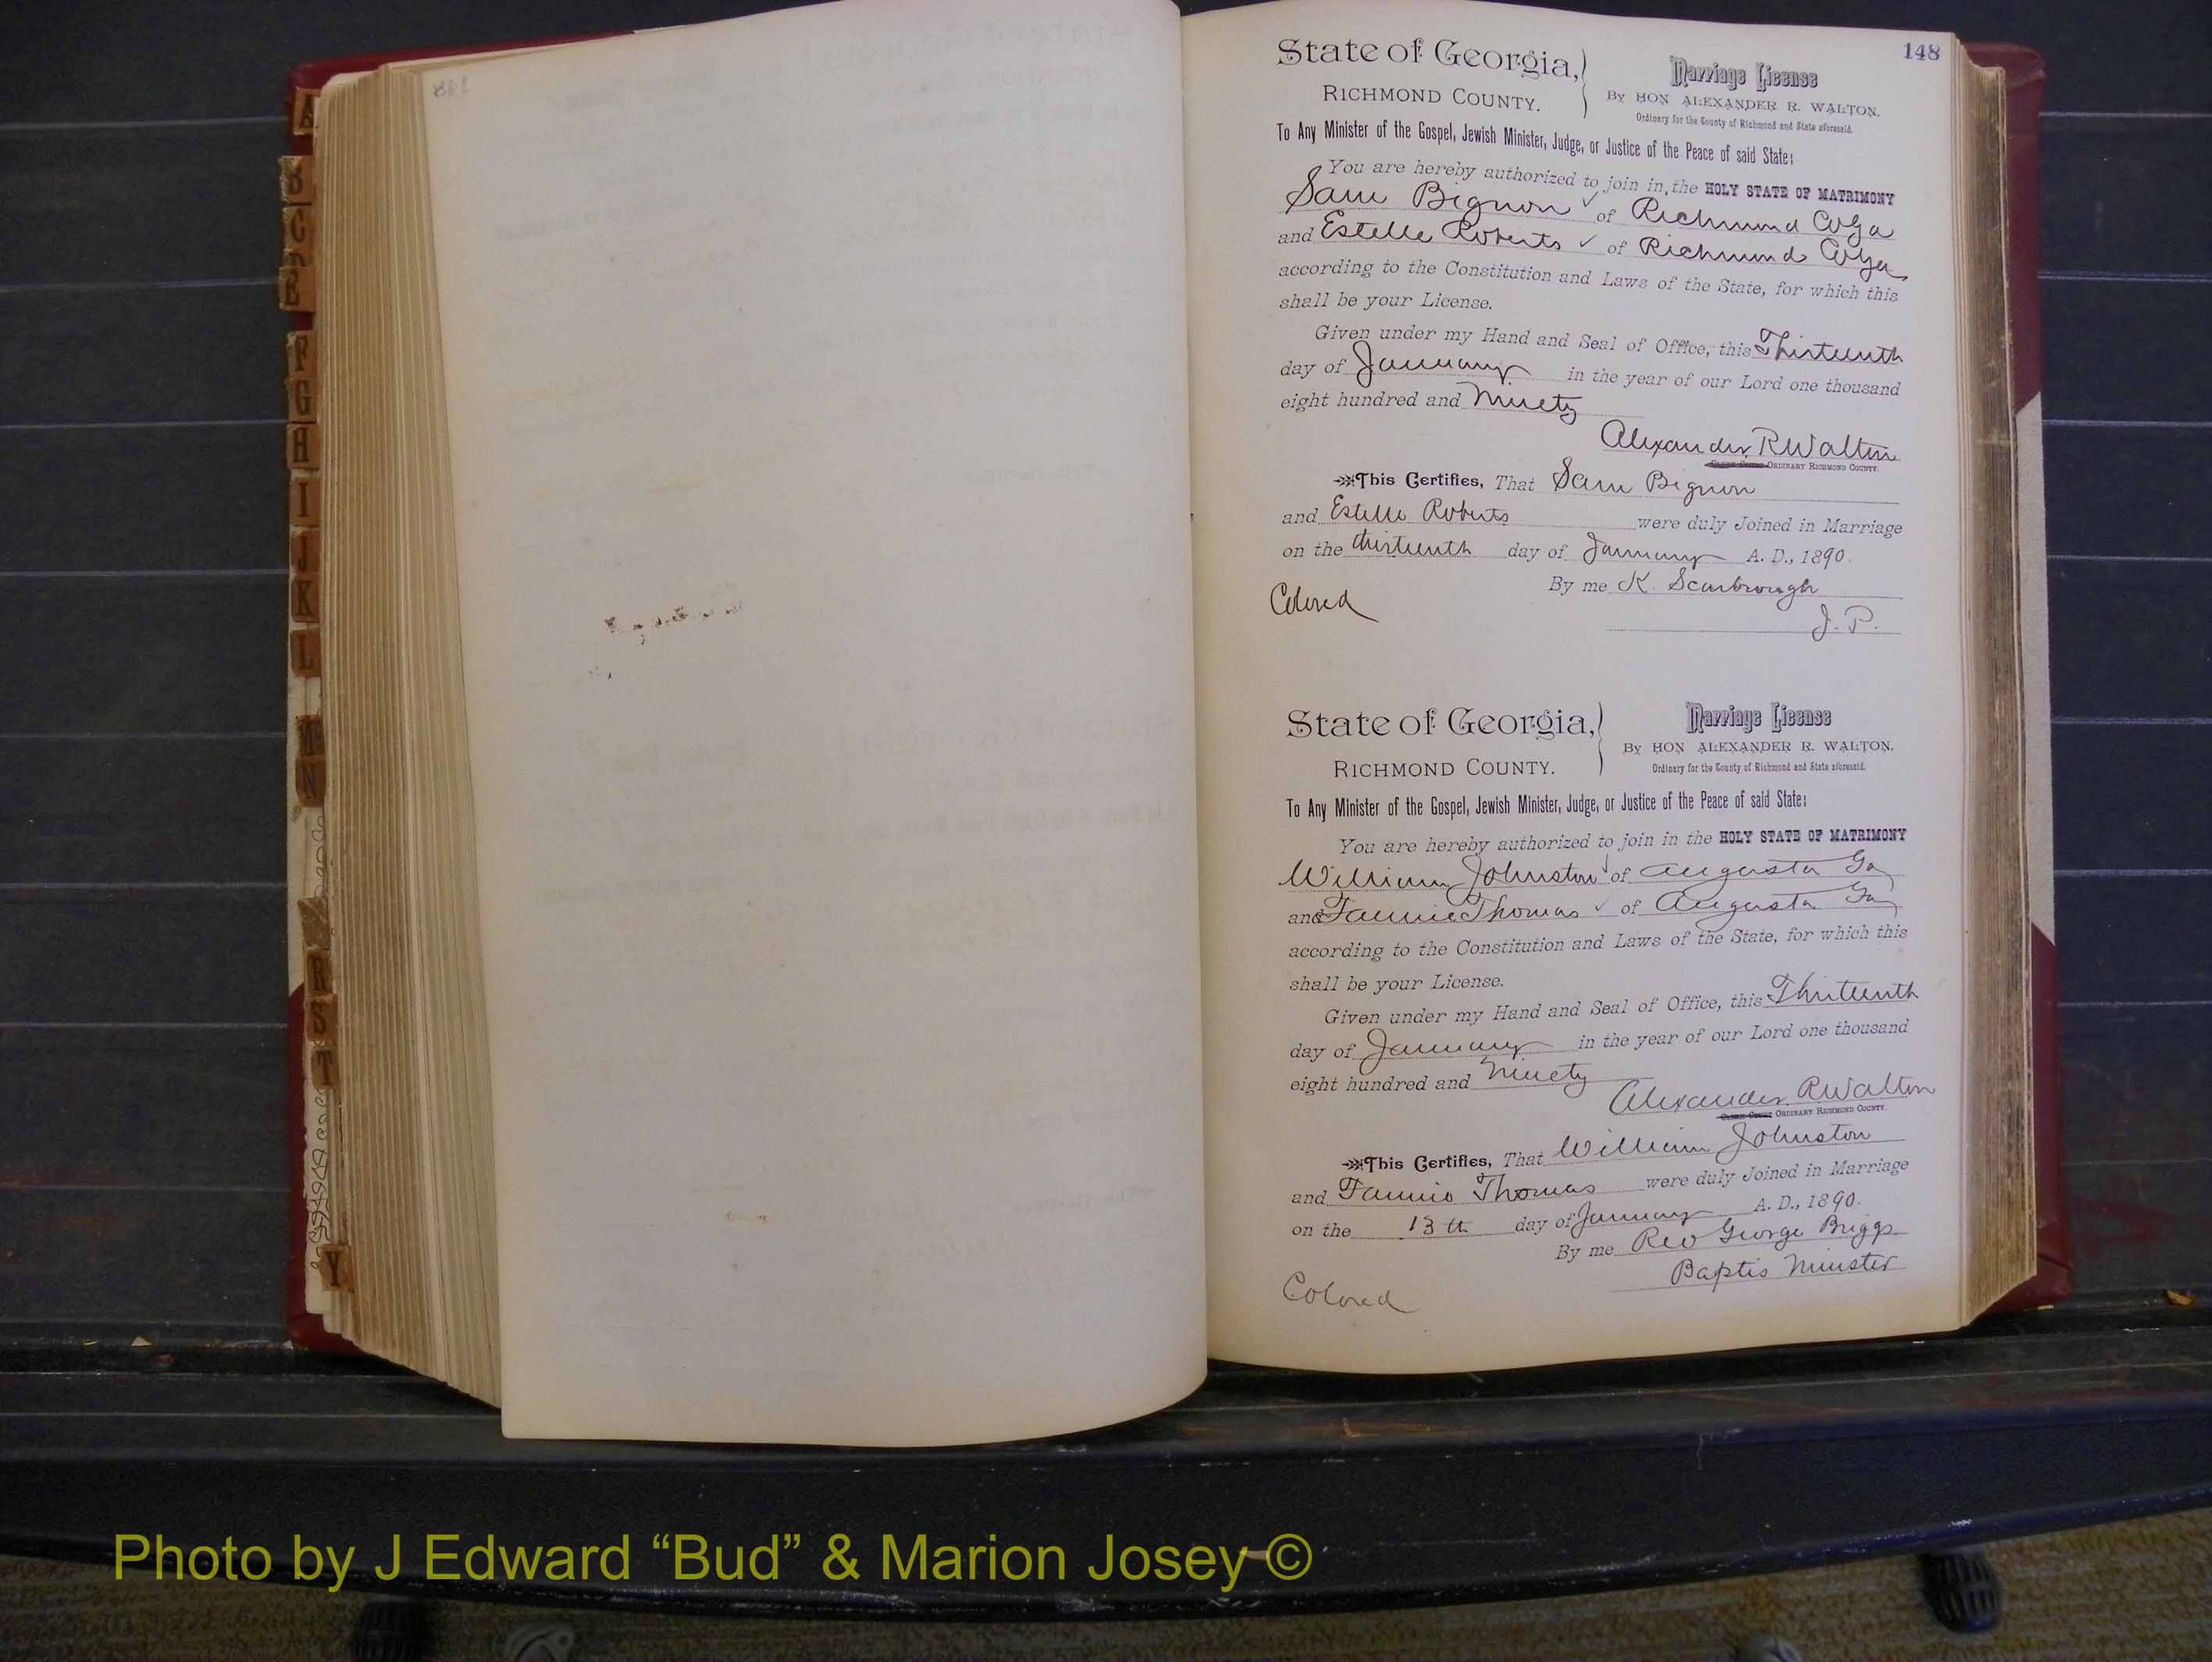 A
B
C
D
E
F
G
H
I
J
K
L
N
R
S
T
Y
148
State of Georgia,
RICHMOND COUNTY.
Marriage License
By HON ALEXANDER R. WALTON,
Ordinary for the County of Richmond and State aforesaid.
To Any Minister of the Gospel, Jewish Minister, Judge, or Justice of the Peace of said State:
You are hereby authorized to join in the HOLY STATE OF MATRIMONY
Sam Bignon ✓ of Richmond Co Ga
and Estelle Roberts ✓ of Richmond Co Ga
according to the Constitution and Laws of the State, for which this
shall be your License.
Given under my Hand and Seal of Office, this Thirteenth
day of January in the year of our Lord one thousand
eight hundred and Ninety
Alexander R Walton
ORDINARY RICHMOND COUNTY.
This Certifies, That Sam Bignon
and Estelle Roberts were duly Joined in Marriage
on the thirteenth day of January A. D., 1890.
By me K. Scarbrough
J. P.
Colored
State of Georgia,
RICHMOND COUNTY.
Marriage License
By HON ALEXANDER R. WALTON,
Ordinary for the County of Richmond and State aforesaid.
To Any Minister of the Gospel, Jewish Minister, Judge, or Justice of the Peace of said State:
You are hereby authorized to join in the HOLY STATE OF MATRIMONY
William Johnston ✓ of Augusta Ga
and Fannie Thomas ✓ of Augusta Ga
according to the Constitution and Laws of the State, for which this
shall be your License.
Given under my Hand and Seal of Office, this Thirteenth
day of January in the year of our Lord one thousand
eight hundred and Ninety
Alexander R Walton
ORDINARY RICHMOND COUNTY.
This Certifies, That William Johnston
and Fannie Thomas were duly Joined in Marriage
on the 13th day of January A. D., 1890.
By me Rev George Briggs
Baptis Minister
Colored
Photo by J Edward “Bud” & Marion Josey ©